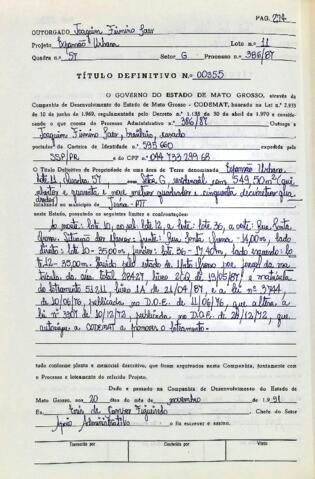 PAG. 274
OUTORGADO Joaquim Firmino
Projeto Expansão Urbana Lote n.º 11
Quadra n.º 57 Setor G Processo n.º 386/87
TÍTULO DEFINITIVO N.º 00355
O GOVERNO DO ESTADO DE MATO GROSSO, através da
Companhia de Desenvolvimento do Estado de Mato Grosso - CODEMAT, baseado na Lei N.º 2.933
10 de junho de 1969, regulamentada pelo Decreto n.º 1.138 de 30 de abril de 1970 e considerando
o que consta do Processo Administrativo n.º 386/87. Outorga a
Joaquim Firmino, brasileiro, casado
portador da Carteira de Identidade n.º 595 660 expedida por
SSP/PR e do CPF n.º 044 733 299 68
O Título Definitivo de Propriedade de uma área de Terra denominada Expansão Urbana
Lote 11, Quadra 57, Setor G, 549,50m²
e quarenta e nove metros quadrados e cinquenta decímetros
localizada no município de Juína - MT
neste Estado, possuindo os seguintes limites e confrontações:
ao norte: lote 10, ao sul: lote 12, a leste: lote 36, a oeste: Rua
frente: Rua 14,00m, lado
direito: lote 10 - 35,00m, lote 36 - 17,40m, lado esquerdo: lote
12 - 35,00m.
28427 livro 19/05/87 e matrícula
do loteamento 51211 livro 21/04/87, e a Lei nº 3744,
de 10/06/76, publicada no D.O.E. de 11/06/76, que altera a
Lei nº 3307 de 10/12/72, publicada no D.O.E. de 28/12/72, que
autoriza a CODEMAT a promover o loteamento.
tudo conforme planta e memorial descritivo, que foram arquivados nesta Companhia, juntamente com
o Processo e loteamento do referido Projeto.
Dado e passado na Companhia de Desenvolvimento do Estado de
Mato Grosso, aos 20 dias do mês de novembro de 1991
Eu, de Campos Figueiredo Chefe do Setor
Apoio Administrativo o fiz escrever e assino.
Transcrito por Conferido por Visto